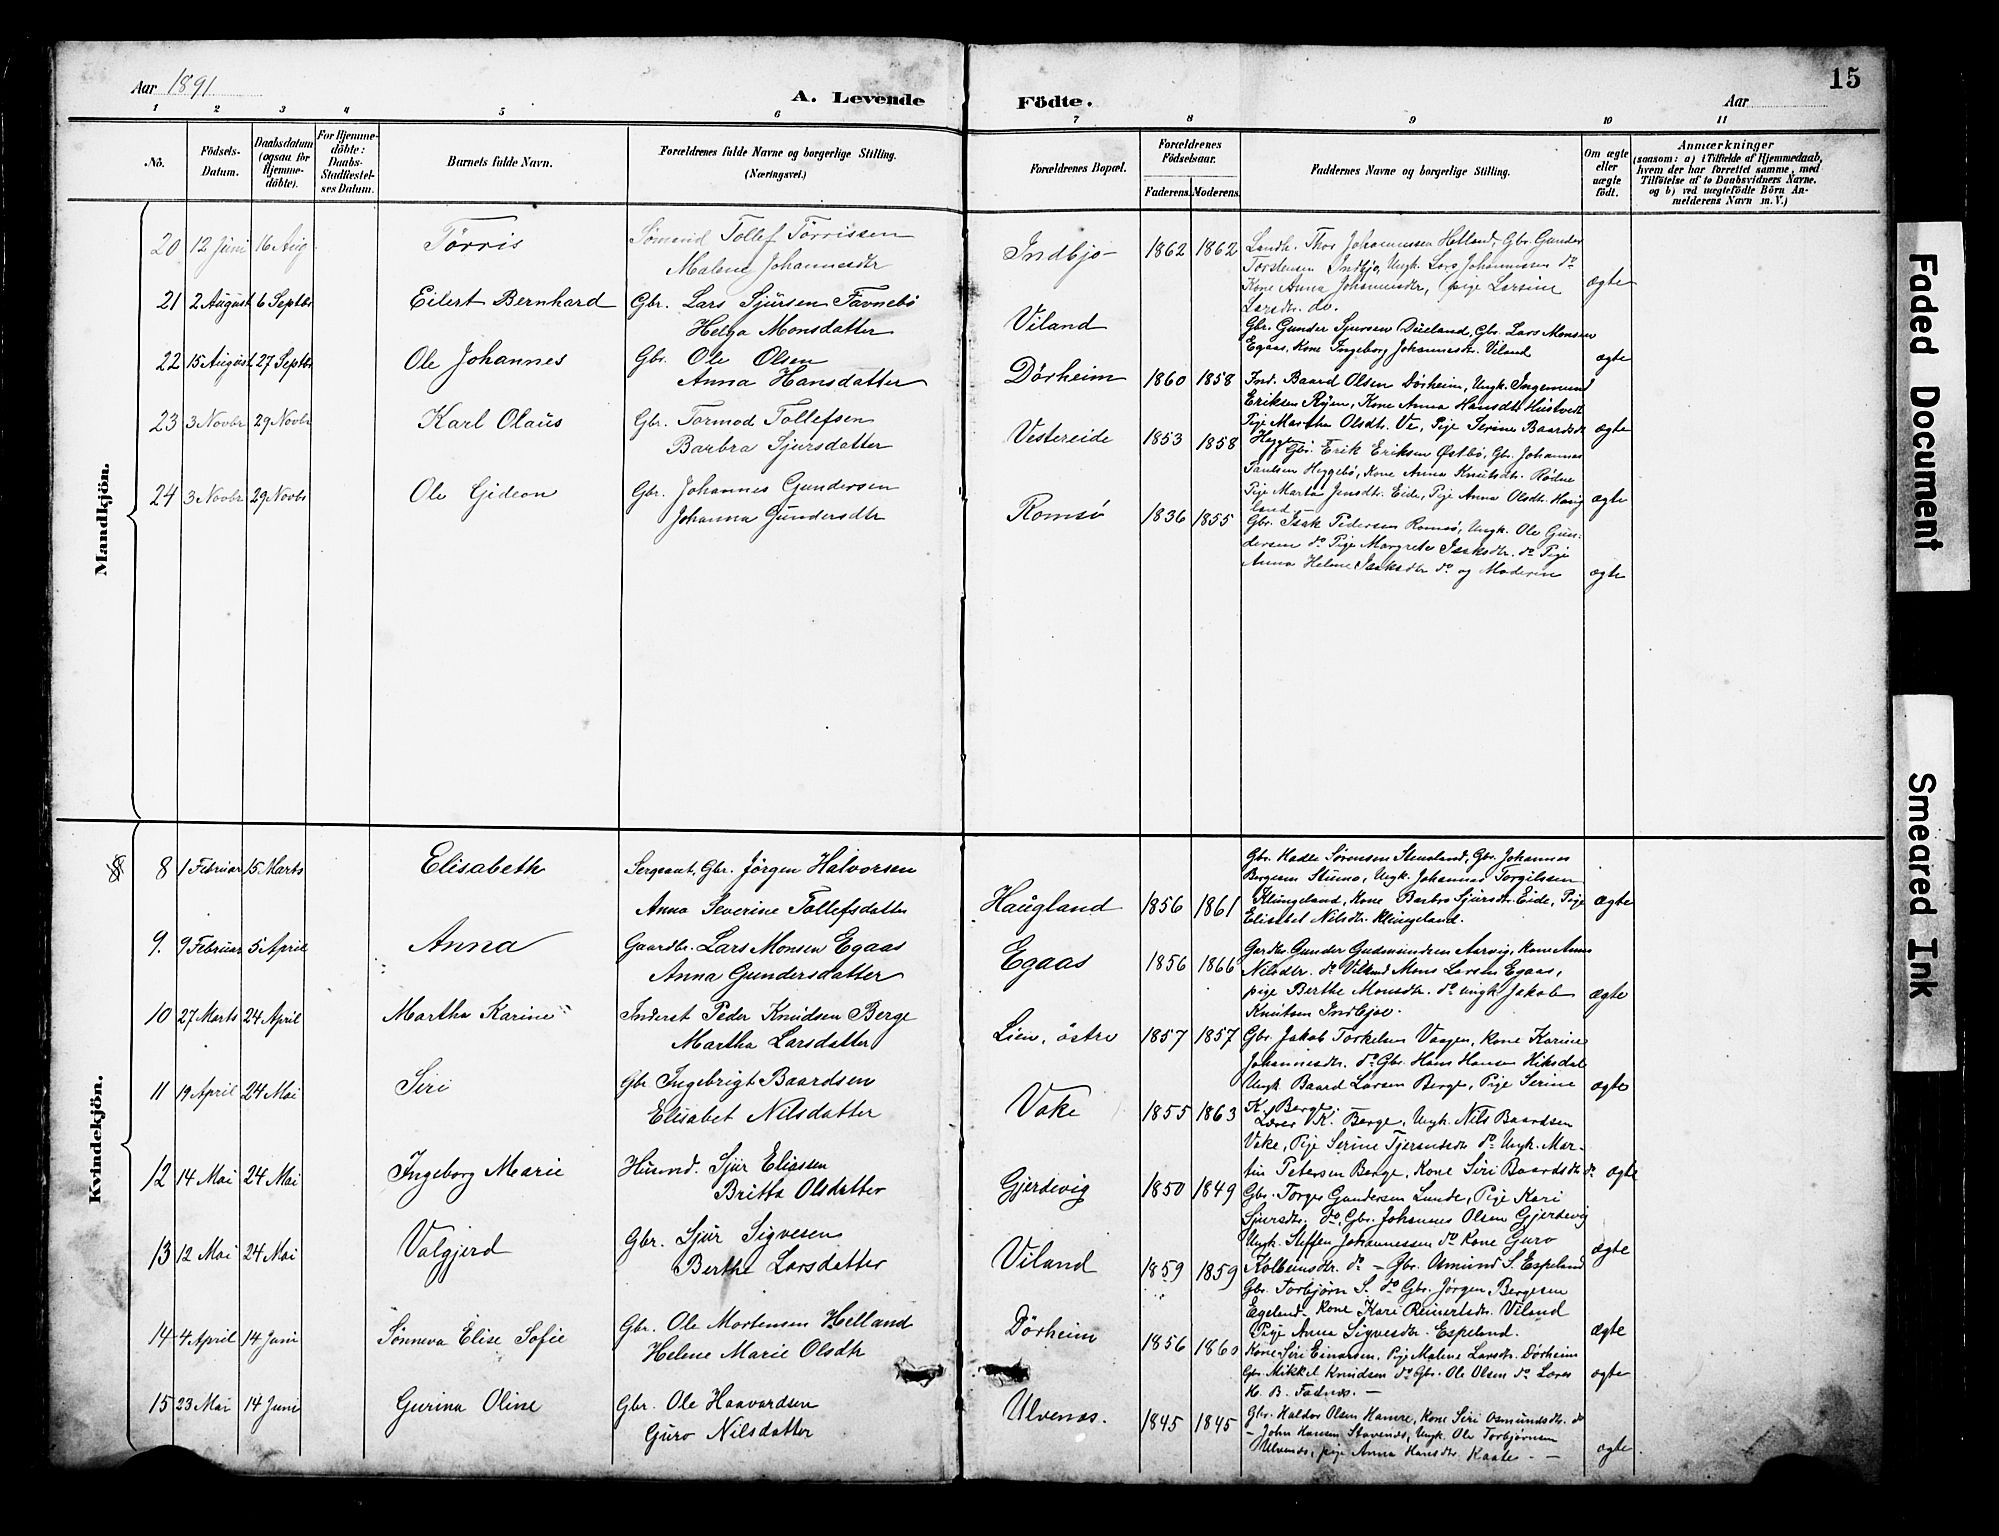 Aar 1891
A. Levende Födte.
Aar
15
1 2 3 4 5 6 7 8 9 10 11
No.
Födsels-Datum.
Daabsdatum (ogsaa for Hjemme-döbte).
For Hjemme-döbte: Daabs-Stadfæstel-ses Datum.
Barnets fulde Navn.
Forældrenes fulde Navne og borgerlige Stilling.
(Næringsvei.)
Forældrenes Bopæl.
Forældrenes Födselsaar.
Faderens. Moderens.
Faddernes Navne og borgerlige Stilling.
Om ægte eller uægte født.
Anmærkninger
(saasom: a) i Tilfælde af Hjemmedaab,
hvem der har forrettet samme, med
Tilföielse af to Daabsvidners Navne.
og b) ved uægtefödte Börn An-
melderens Navn m. V.)
Mandkjön.
20 12 Juni 16 Aug Törris Sömand Tollef Törrissen
Malene Johannesdtr
Indbjo 1862 1862
Landh. Thor Johannessen Helland, Gbr. Gunder
Torstensen Indbjo, Ungk. Lars Johannessen do
Kone Anna Johannesdtr, pige Larsine
Larsdtr. do. ægte
21 2 August 6 Septbr Eilert Bernhard Gbr. Lars Sjursen
Helga Monsdatter
Viland
Gbr. Gunder Sjursen Dueland, Gbr. Lars Monsen
Egaas, Kone Ingeborg Johannesdtr. Viland ægte
22 15 August 27 Septbr Ole Johannes Gbr. Ole Olsen
Anna Hansdatter
Dörheim 1860 1858
Ind. Baard Olsen Dörheim, Ungk. Ingemund
Eriksen Röen, Kone Anna Hansdtr Hustvedt
Pige Martha Olsdtr. Ve, Pige Serine Baardsdtr ægte
23 3 Novbr 29 Novbr Karl Olaus Gbr. Tormod Tollefsen
Barbra Sjursdatter
Vestereide 1853 1858
Gbr. Erik Eriksen Østbö, Gbr. Johannes
Paulsen Heggebö, Kone Anna Knutsdtr. Rødne
Pige Marta Jensdtr. Eide, Pige Anna Olsdtr. Haug
land — ægte
24 3 Novbr 29 Novbr Ole Gideon Gbr. Johannes Gundersen
Johanna Gundersdtr
Romsö 1836 1855
Gbr. Isak Pedersen Romsö, Ungk. Ole Gun-
dersen do Pige Margrete Isaksdtr. do Pige
Anna Helene Isaksdtr do og Moderen ægte
Kvindekjön.
8 1 Februar 15 Marts Elisabeth Sergeant, Gbr. Jörgen Halvorsen
Anna Severine Tollefsdatter
Haugland 1856 1861
Gbr. Hadle Sörensen Stensland, Gbr. Johannes
Bergesen Stumo, Ungk. Johannes Torgilssen
Klungeland, Kone Barbro Sjursdtr. Eide, Pige
Elisabet Nilsdtr. Klungeland. ægte
9. 9 Februar 5 April Anna Gaardbr. Lars Monsen Egaas
Anna Gundersdatter
Egaas 1856 1866
Gardbr. Gunder Gudmundsen Aarvig, Kone Anna
Nilsdtr. do Viland Mons Larsen Egaas,
pige Berthe Monsdtr. do ungk. Jakob
Knutsen Indbjoe. ægte
10 27 Marts 24 April Martha Karine Inderst Peder Knudsen Berge
Martha Larsdatter
Lien, östre 1857 1857
Gbr. Jakob Torkelsen Vaagen, Kone Karine
Johannesdtr. do Gbr. Hans Hansen Hiksdal
Ungk. Baard Larsen Berge, Pige Serine
K. Berge. ægte
11 19 April 24 Mai Siri Gbr Ingebrigt Baardsen
Elisabet Nilsdatter
Vake 1855 1863
Lærer K. Berge, Ungk. Nils Baardsen
Vake, Pige Serine Tjerandsdtr do Ungk. Mar-
tin Petersen Berge, Kone Siri Baardsdtr do ægte
12 14 Mai 24 Mai Ingeborg Marie Husmd. Sjur Eliassen
Britta Olsdatter
Gjerdevig 1850 1849
Gbr. Torger Gundersen Lunde, Pige Kari
Sjursdtr. do, Gbr. Johannes Olsen Gjerdevig
Ungk. Steffen Johannessen do Kone Guro
Kolbeinsdtr. do — ægte
13 12 Mai 24 Mai Valgjerd Gbr. Sjur Sigvesen
Berthe Larsdatter
Viland 1859 1859
Gbr. Amund S. Espeland
Gbr. Torbjörn S. do Gbr. Jörgen Bergesen
Egeland Kone Kari Reinertsdtr. Viland
Pige Anna Sigvesdtr. Espeland. ægte
14 4 April 14 Juni Sönneva Elise Sofie Gbr. Ole Mortensen Helland
Helene Marie Olsdtr
Dörheim 1856 1860
Kone Siri Einarsen, Pige Malene Larsdtr. Dörheim
Gbr. Mikkel Knudsen do Gbr. Ole Olsen do Lærer
H. B. Fadnes. — ægte
15 23 Mai 14 Juni Gurina Oline Gbr. Ole Haavardsen
Guro Nilsdatter
Ulvenes. 1845 1845
Gbr. Haldor Olsen Hamre, Kone Siri Osmundsdtr. do
— John Hansen Stavenes, Ungk. Ole Torbjørnsen
Ulvenes, pige Anna Hansdtr. Kaate. — ægte
Faded Document
Smeared Ink